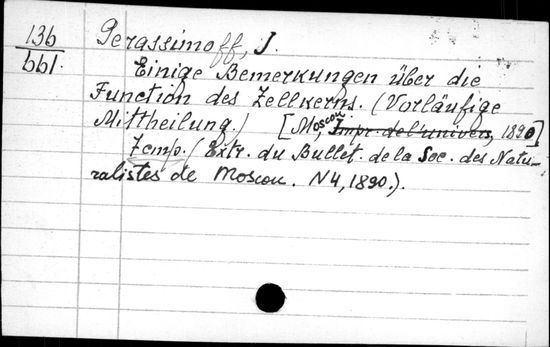 136
661.
Gerassimoff, J.
Einige Bemerkungen über die
Function des Zellkerns. (Vorläufige
Mittheilung.) [Moscou, Impr. de l'univers, 1890]
(Extr. du Bullet. de la Soc. des Natu-
ralistes de Moscou. N4, 1890.).